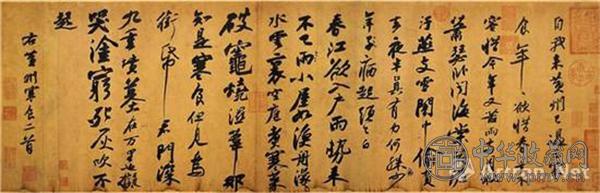 自我來黃州已過三寒
食年年欲惜春春去不
容惜今年又苦雨兩月秋
蕭瑟臥聞海棠花泥
汙燕支雪闇中偷負
去夜半真有力何殊少
年子病起頭已白
春江欲入戶雨勢來
不已雨小屋如漁舟濛濛
水雲裏空庖煮寒菜
破竈燒濕葦那
知是寒食但見烏
銜帋君門深
九重墳墓在万里也擬
哭塗窮死灰吹不
起
右黃州寒食二首
中华收藏网